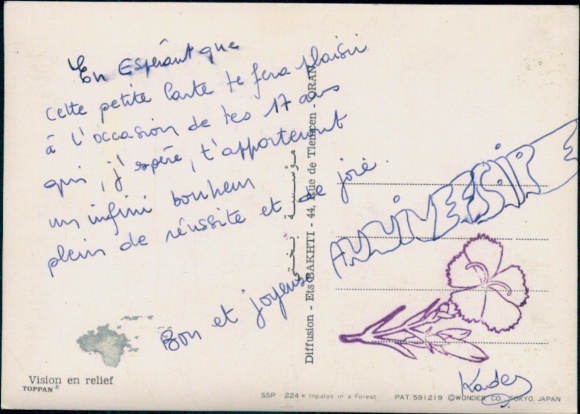 En Espérant que
cette petite Carte te fera plaisir
à l'occasion de tes 17 ans
qui, j'espère, t'apporteront
un infini bonheur
plein de réussite et de joie.
Bon et joyeux ANNIVERSAIRE
Kader
مؤسسة بختي
Diffusion - Ets BAKHTI - 44, Rue de Tlemcen - ORAN
Vision en relief
TOPPAN®
SSP - 224 Inpates in a Forest
PAT. 591219 ©WONDER CO. TOKYO, JAPAN